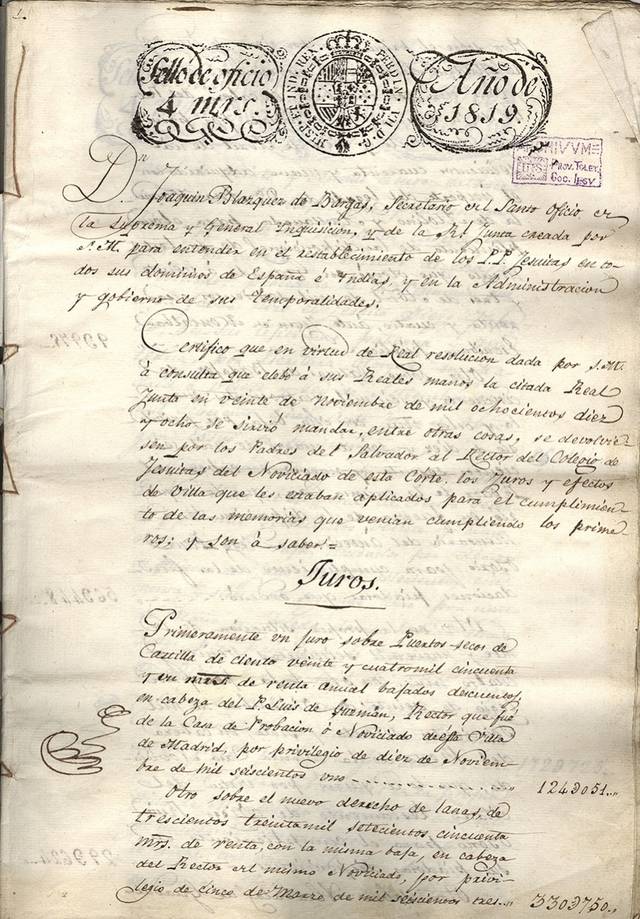 1.
Sello de oficio
4 mrs.
HISP. ET IND. REX. FERDIN. VII. D. G.
Año de
1819.
IHS
PROV. TOLET.
SOC. IESV
Dn. Joaquin Blazquez de Bargas, Secretario del Santo Oficio de
la Suprema y General Inquisicion, y de la Rl. Junta creada por
S. M. para entender en el restablecimiento de los P.P. Jesuitas en to-
dos sus dominios de España é Indias, y en la Administracion
y gobierno de sus Temporalidades.
Certifico que en virtud de Real resolucion dada por S. M.
á consulta que elebó á sus Reales manos la citada Real
Junta en veinte de Noviembre de mil ochocientos diez
y ocho se sirvió mandar, entre otras cosas, se devolvie-
sen por los Padres del Salvador al Rector del Colegio de
Jesuitas del Noviciado de esta Córte, los Juros y efectos
de Villa que les estaban aplicados para el cumplimien-
to de las memorias que venian cumpliendo los prime-
ros; y son á saber=
Juros.
Primeramente vn juro sobre Puertos-secos de
Castilla de ciento veinte y cuatromil cincuenta
y un mrs. de renta anual bajados descuentos,
en cabeza del P. Luis de Guzman, Rector que fué
de la Casa de Probacion ó Noviciado de esta Villa
de Madrid, por privilegio de diez de Noviem-
bre de mil seiscientos vno 124ↄ051.
Otro sobre el nuevo derecho de lanas, de
trescientos treintamil setecientos cincuenta
mrs. de renta, con la misma baja, en cabeza
del Rector del mismo Noviciado, por privi-
legio de cinco de Marzo de mil seiscientos tres. 330ↄ750.